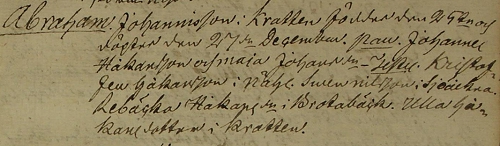 Abraham. Johannisson i Kratten födder den 25te och
döpter den 27de December. par. Johannes
Håkansson och maja Johans dr Test. Kristof
fer Håkansson i Sven nilsson i
Håkans dr i Krokabäck. Ulla Hå=
kans dotter i Kratten.